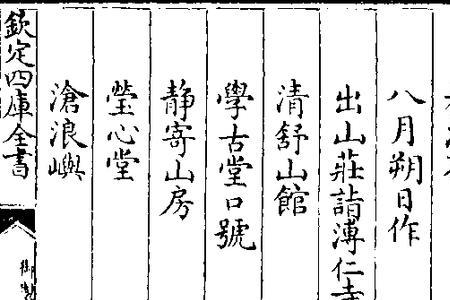 八月朔日作
出山莊詣溥仁寺
清舒山館
學古堂口號
靜寄山房
瑩心堂
滄浪嶼
欽定四庫全書
御製